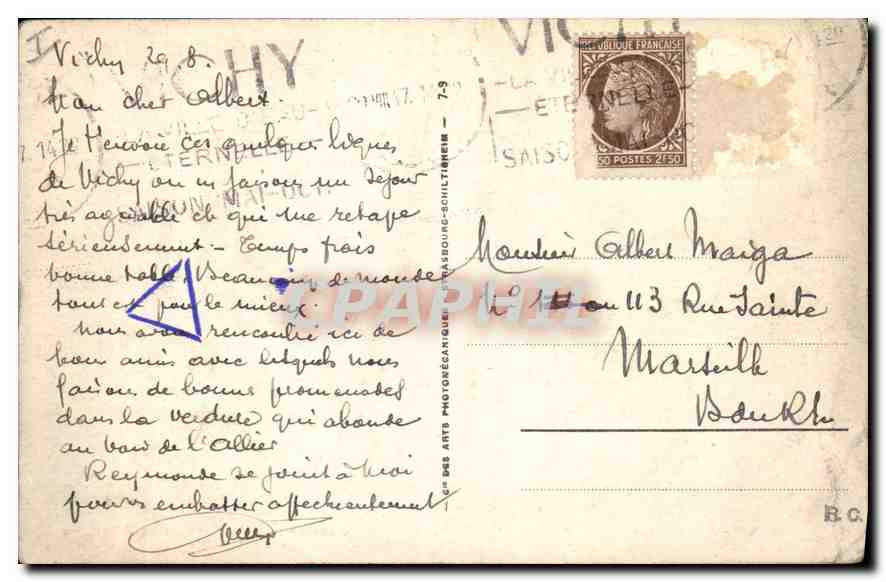 I
Vichy 29.8.
Mon cher Albert.
Je t'envoie ces quelques lignes
de Vichy où nous faisons un séjour
très agréable et qui me retape
sérieusement - Temps frais
bonne table, Beaucoup de monde
tout est pour le mieux.
Nous avons rencontré ici de
bons amis avec lesquels nous
faisons de bonnes promenades
dans la verdure qui abonde
au bord de l'Allier
Raymonde se joint à moi
pour embrasser affectueusement
VICHY
ETERNELLE
SAISON MAI-OCT.
Cie DES ARTS PHOTOMÉCANIQUES STRASBOURG-SCHILTIGHEIM - 7-9
VICHY
LA VILLE
ETERNELLE
SAISON
REPUBLIQUE FRANÇAISE
50 POSTES 2F50
Monsieur Albert Maiga
No ou 113 Rue Sainte
Marseille
B.C.
CPAPHIL